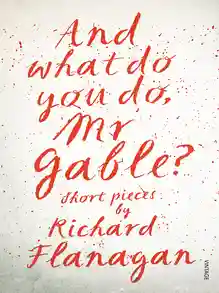 And
what do
you do,
Mr
Gable?
short pieces
by
Richard
Flanagan
VINTAGE